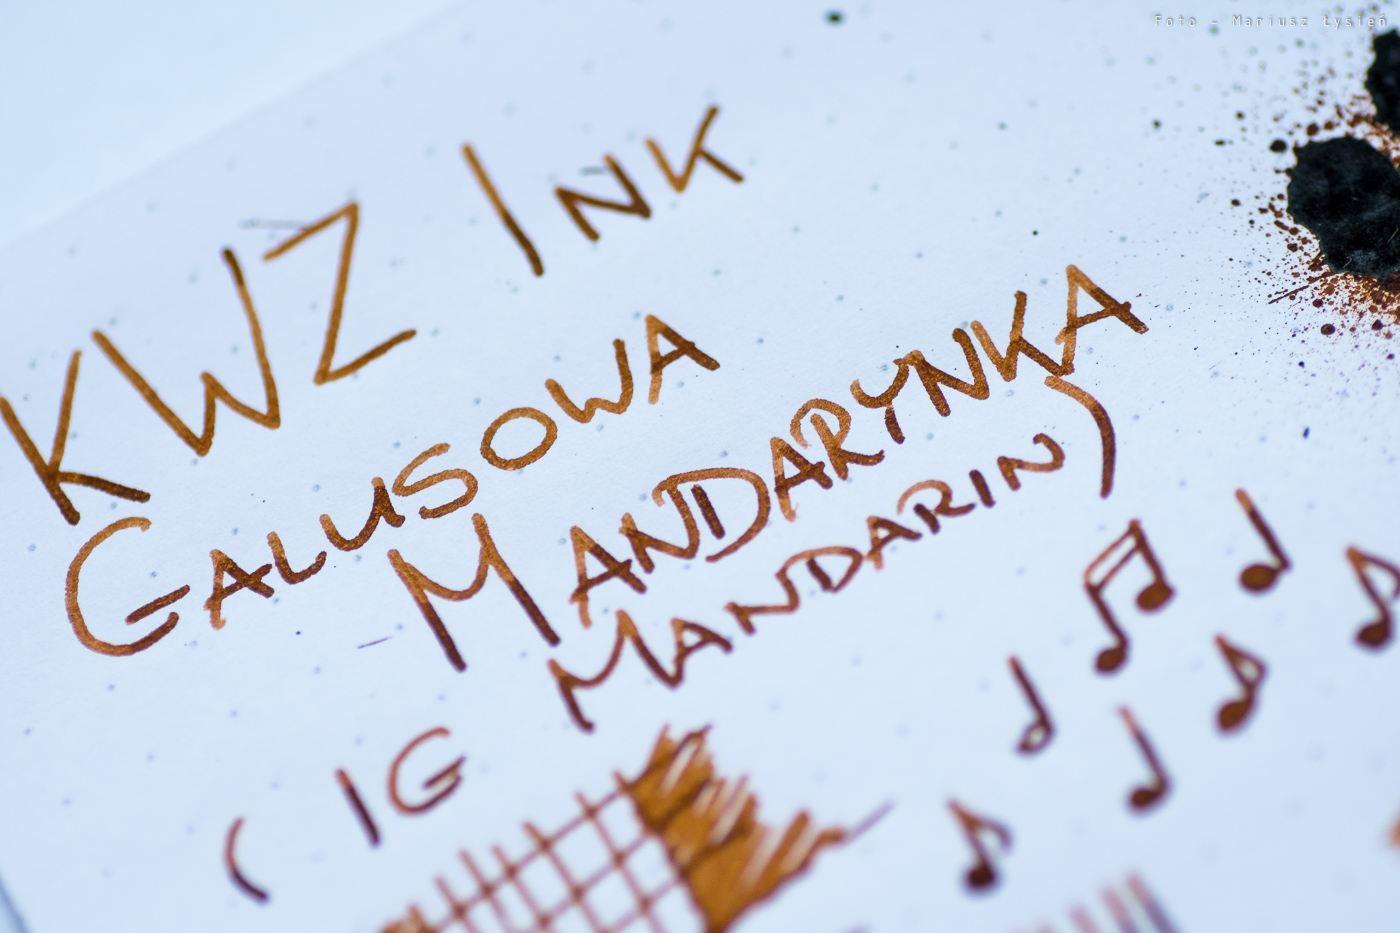 Foto - Mariusz Łysień
KWZ INK
GALUSOWA
MANDARYNKA
( IG MANDARIN)